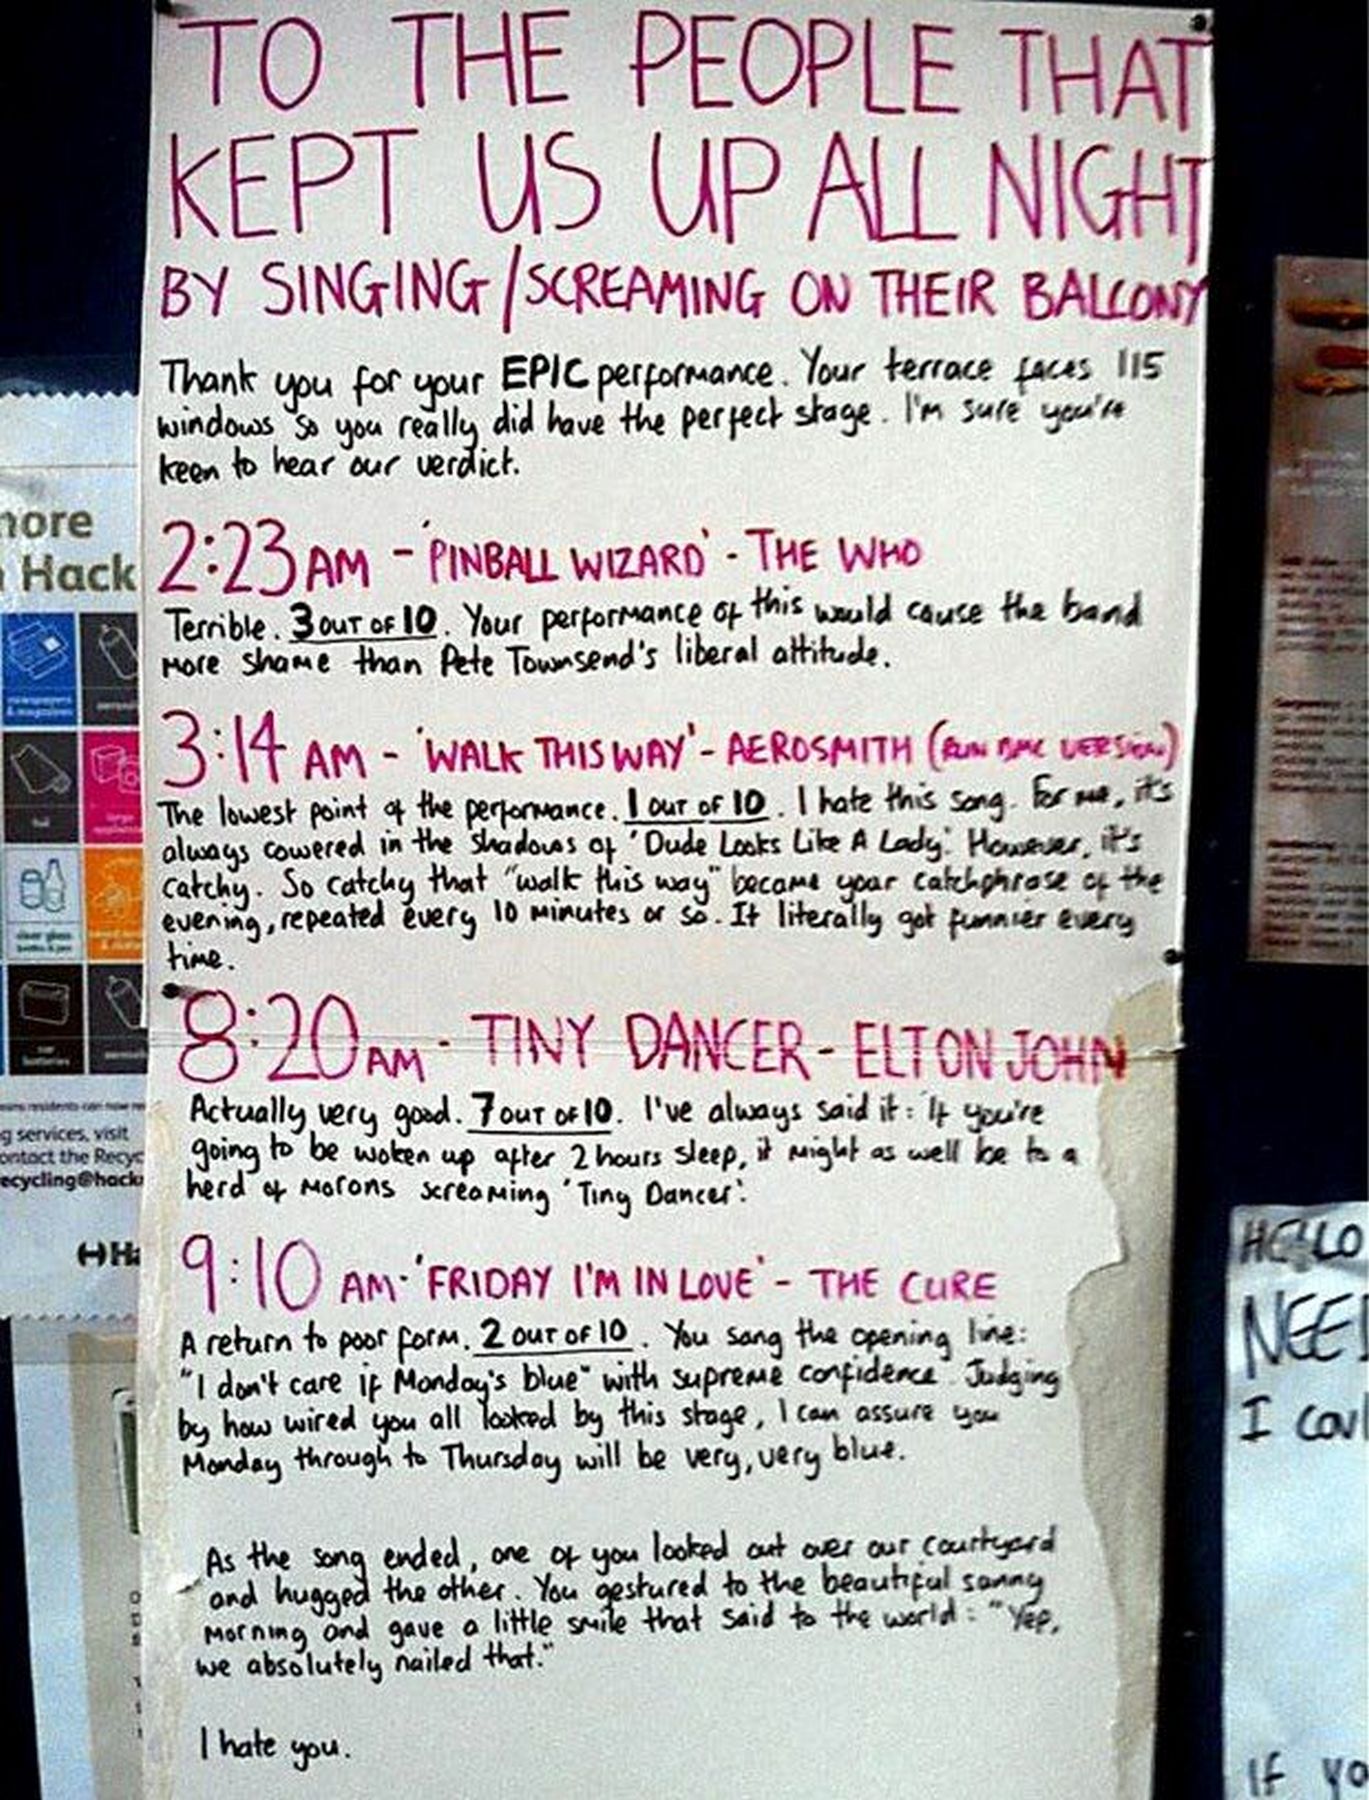 TO THE PEOPLE THAT
KEPT US UP ALL NIGHT
BY SINGING/SCREAMING ON THEIR BALCONY
Thank you for your EPIC performance. Your terrace faces 115
windows so you really did have the perfect stage. I'm sure you're
keen to hear our verdict.
2:23 AM - 'PINBALL WIZARD' - THE WHO
Terrible. 3 OUT OF 10. Your performance of this would cause the band
more shame than Pete Townsend's liberal attitude.
3:14 AM - 'WALK THIS WAY' - AEROSMITH (RUN DMC VERSION)
The lowest point of the performance. 1 OUT OF 10. I hate this song. For me, it's
always cowered in the shadows of 'Dude Looks Like A Lady'. However, it's
catchy. So catchy that "walk this way" became your catchphrase of the
evening, repeated every 10 minutes or so. It literally got funnier every
time.
8:20 AM - TINY DANCER - ELTON JOHN
Actually very good. 7 OUT OF 10. I've always said it: 'If you're
going to be woken up after 2 hours sleep, it might as well be to a
herd of morons screaming 'Tiny Dancer'.
9:10 AM - 'FRIDAY I'M IN LOVE' - THE CURE
A return to poor form. 2 OUT OF 10. You sang the opening line:
"I don't care if Monday's blue" with supreme confidence. Judging
by how wired you all looked by this stage, I can assure you
Monday through to Thursday will be very, very blue.
As the song ended, one of you looked out over our courtyard
and hugged the other. You gestured to the beautiful sunny
morning and gave a little smile that said to the world: "Yep,
we absolutely nailed that."
I hate you.
more
Hack
newspapers
& magazines
clear glass
car
batteries
g services, visit
ontact the Recyc
ecycling@hack
Ha
HELLO
NEE
I cou
If yo